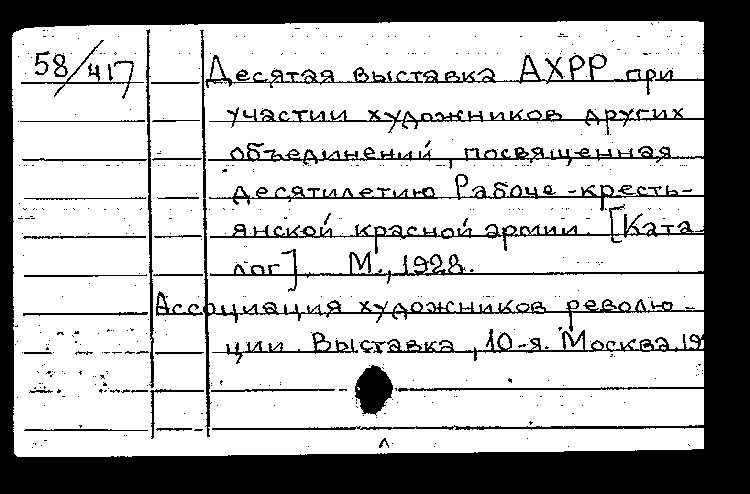 58/417 Десятая выставка АХРР при
участии художников других
объединений, посвященная
десятилетию Рабоче-кресть-
янской красной армии. [Ката
лог]. М., 1928.
Ассоциация художников револю-
ции. Выставка, 10-я. Москва. 19